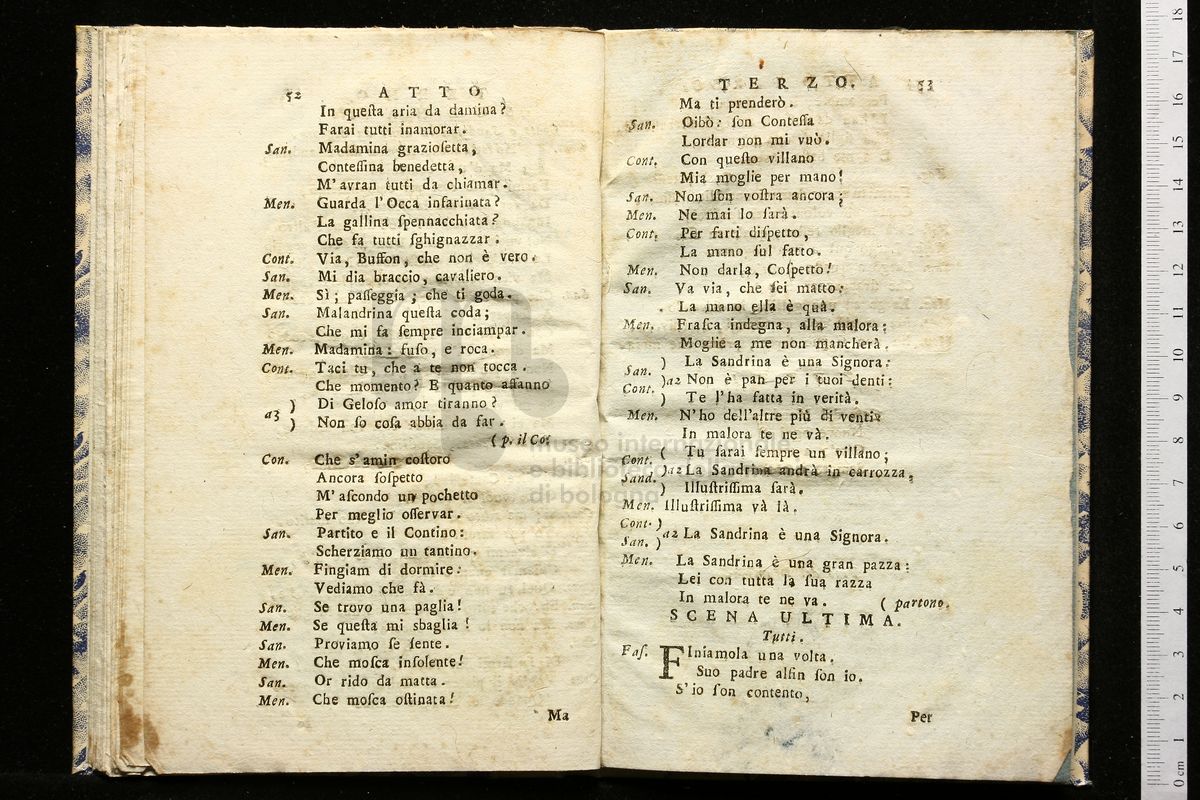 52 ATTO
In queſta aria da damina?
Farai tutti inamorar.
San. Madamina grazioſetta,
Conteſſina benedetta,
M'avran tutti da chiamar.
Men. Guarda l'Occa infarinata?
La gallina ſpennacchiata?
Che fa tutti ſghignazzar.
Cont. Via, Buffon, che non è vero.
San. Mi dia braccio, cavaliero.
Men. Sì; paſſeggia; che ti goda.
San. Malandrina queſta coda;
Che mi fa ſempre inciampar.
Men. Madamina: fuſo, e roca.
Cont. Taci tu, che a te non tocca.
Che momento? E quanto affanno
) Di Geloſo amor tiranno?
a3
) Non ſo coſa abbia da far.
( p. il Co:
Con. Che s'amin coſtoro
Ancora ſoſpetto
M'aſcondo un pochetto
Per meglio oſſervar.
San. Partito e il Contino:
Scherziamo un tantino.
Men. Fingiam di dormire:
Vediamo che fà.
San. Se trovo una paglia!
Men. Se queſta mi sbaglia!
San. Proviamo ſe ſente.
Men. Che moſca inſolente!
San. Or rido da matta.
Men. Che moſca oſtinata!
Ma
TERZO. 53
Ma ti prenderò.
San. Oibò: ſon Conteſſa
Lordar non mi vuò.
Cont. Con queſto villano
Mia moglie per mano!
San. Non ſon voſtra ancora;
Men. Ne mai lo ſarà.
Cont. Per farti diſpetto,
La mano ſul fatto.
Men. Non darla, Coſpetto!
San. Va via, che ſei matto:
La mano ella è quà.
Men. Fraſca indegna, alla malora:
Moglie a me non mancherà.
San. ) La Sandrina è una Signora:
Cont. )a2 Non è pan per i tuoi denti:
) Te l'ha fatta in verità.
Men. N'ho dell'altre più di venti:
In malora te ne và.
Cont. ( Tu ſarai ſempre un villano;
Sand. )a2 La Sandrina andrà in carrozza,
) Illuſtriſſima ſarà.
Men. Illuſtriſſima và là.
Cont. )
San. )a2 La Sandrina è una Signora.
Men. La Sandrina è una gran pazza:
Lei con tutta la ſua razza
In malora te ne va. ( partono.
SCENA ULTIMA.
Tutti.
Faſ. FIniamola una volta.
Suo padre alfin ſon io.
S'io ſon contento,
Per
museo internazionale
e biblioteca
di bologna
0 cm 1 2 3 4 5 6 7 8 9 10 11 12 13 14 15 16 17 18